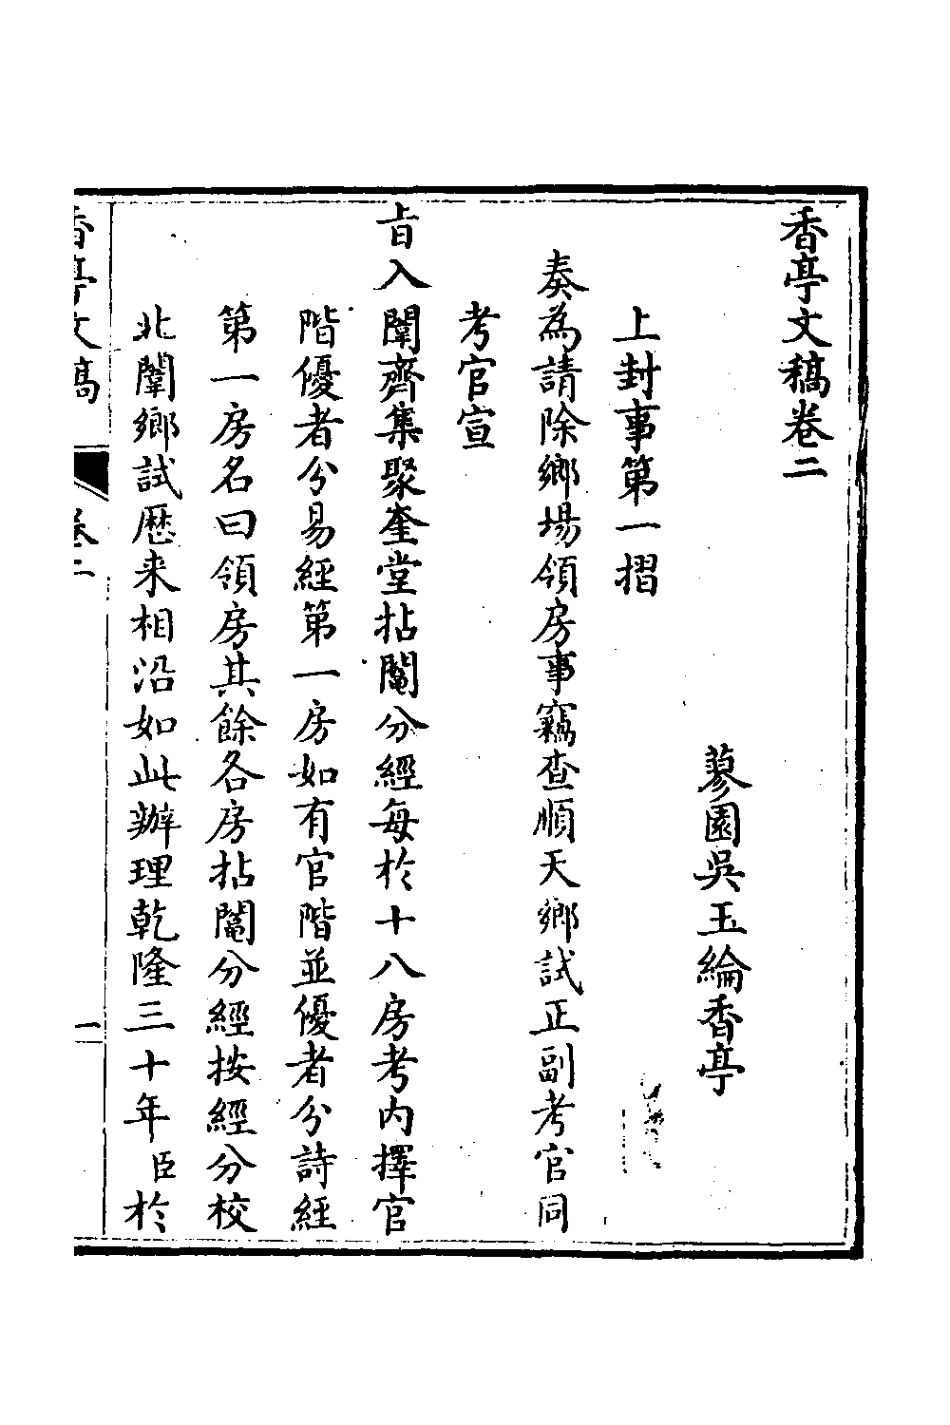 香亭文稿卷二
蓼園吳玉綸香亭
上封事第一摺
奏為請除鄉場領房事竊查順天鄉試正副考官同
考官宣
旨入闈齊集聚奎堂拈鬮分經每於十八房考內擇官
階優者分易經第一房如有官階並優者分詩經
第一房名曰領房其餘各房拈鬮分經按經分校
北闈鄉試歷来相沿如此辦理乾隆三十年臣於
香亭文稿
卷二
一